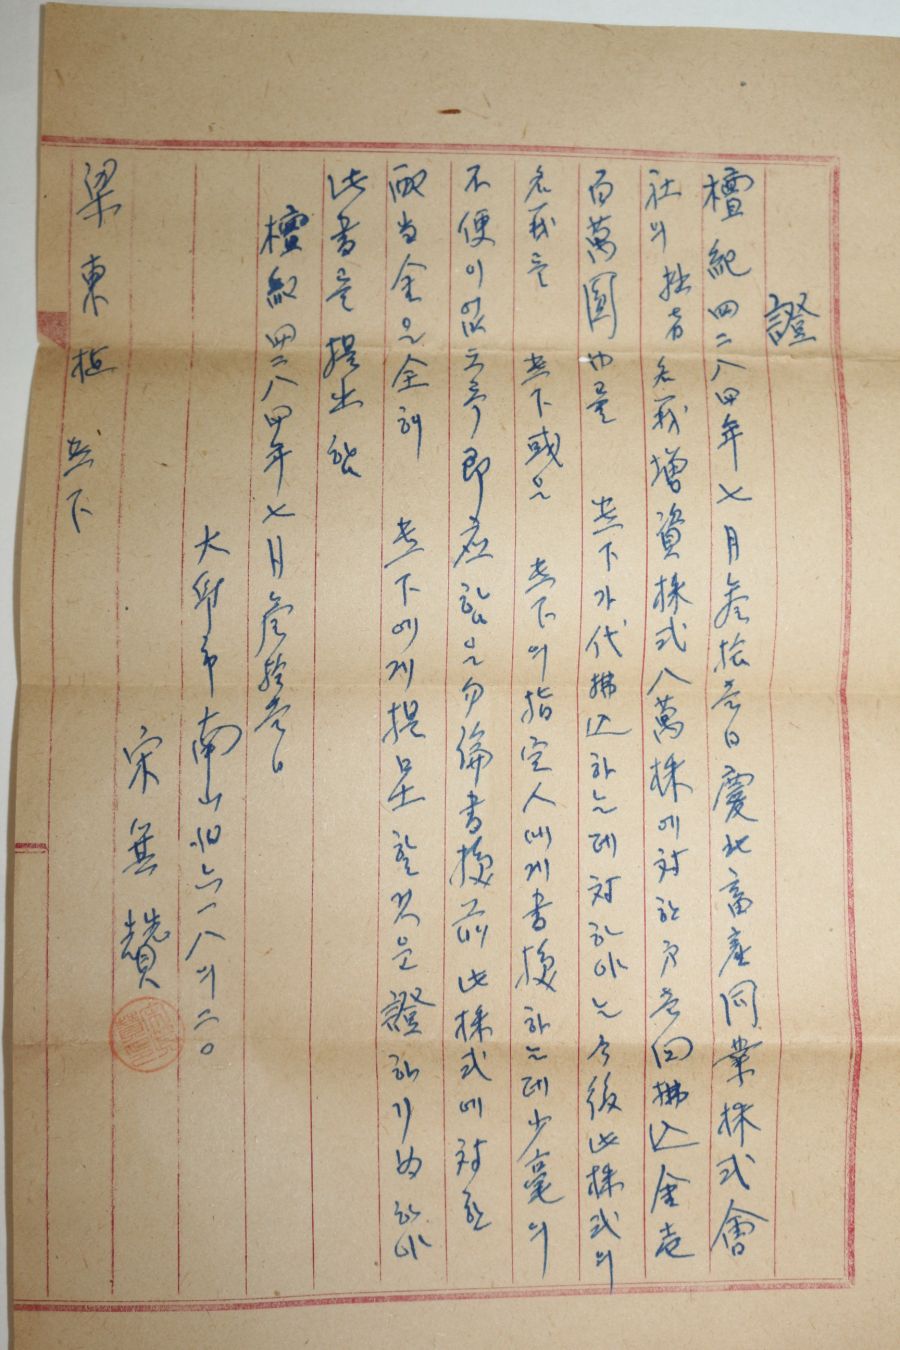 證
檀紀四二八四年七月參拾壱日慶北畜産同業株式會
社의 拙者名義增資株式八萬株에対한 第壱回拂込金壱
百萬圓也을 貴下가代拂込하는데対하야는今後此株式의
名義を 貴下或은 貴下의指定人에게書換하는데少毫의
不便이없도록即應함은勿論書換前此株式에対한
配当金은全혀 貴下에게提呈할것을證하기爲하야
此書을提出함
檀紀四二八四年七月參拾壱日
大邱市南山洞六一八의二〇
宋 無 讚
梁東 貴下